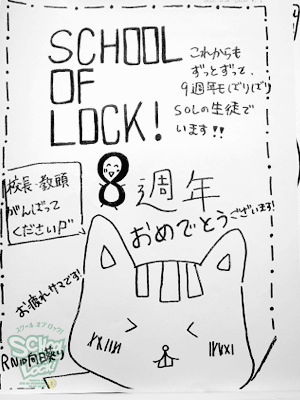 SCHOOL
OF
LOCK!
これからも
ずっとずっと、
9週年もビリビリ
SOLの生徒で
います!!
校長・教頭
がんばって
くださいが
8週年
おめでとうございます!
お疲れサマです!
スクール オブ ロック!
SCHOOL
OF
LOCK!
RN 向日葵